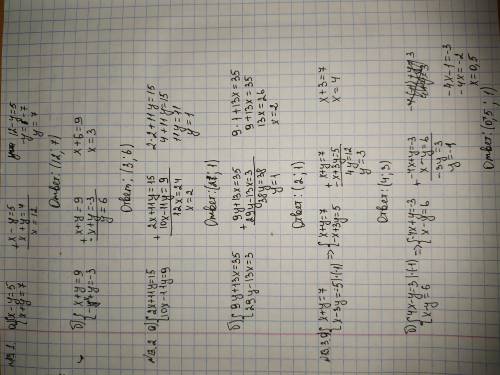 №13.1. а) { x-y=5
x+y=7
+ x-y=5
x+y=7
x=12
12-y=5
y=7
Ответ: (12; 7)
б) { x+y=9
-x+y=-3
+ x+y=9
-x+y=-3
y=6
x+6=9
x=3
Ответ: (3; 6)
№13.2 а) { 2x+11y=15
10x-11y=9
+ 2x+11y=15
10x-11y=9
12x=24
x=2
2·2+11y=15
4+11y=15
11y=11
y=1
Ответ: (2; 1)
б) { 9y+13x=35
29y-13x=3
+ 9y+13x=35
29y-13x=3
38y=38
y=1
9·1+13x=35
9+13x=35
13x=26
x=2
Ответ: (2; 1)
№13.3 а) { x+y=7
x-3y=-5 |·(-1)
⇒ { x+y=7
-x+3y=5
+ x+y=7
-x+3y=5
4y=12
y=3
x+3=7
x=4
Ответ: (4; 3)
б) { 4x-y=3 |·(-1)
x-y=6
⇒ { -4x+y=-3
x-y=6
+ -4x+y=-3
x-y=6
-3y=3
y=-1
-4x-1=-3
-4x=-2
x=0,5
Ответ: (0,5; -1)